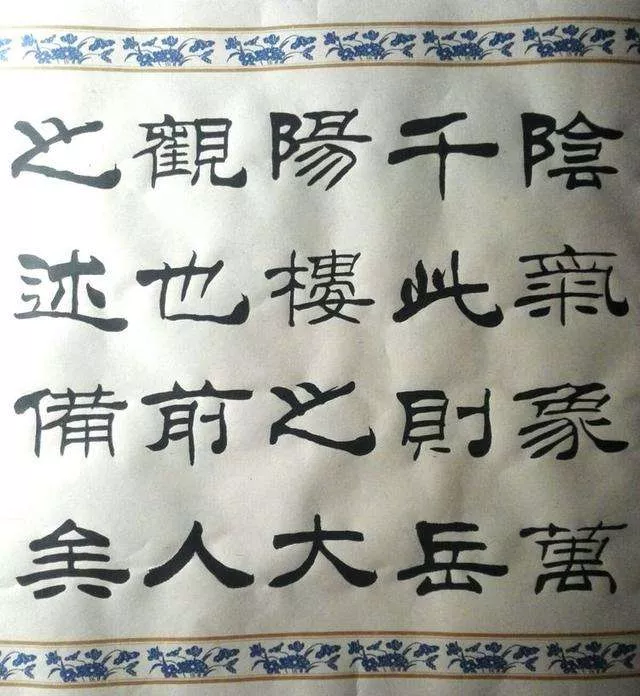 陰氣象萬
千此則岳
陽樓之大
觀也前人
之述備矣